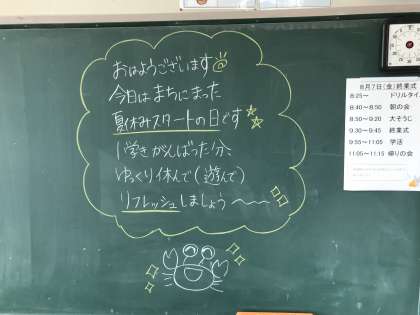 おはようございます
今日はまちにまった
夏休みスタートの日です☆☆
1学きがんばった分、
ゆっくり休んで(遊んで)
リフレッシュしましょう〜〜〜
8月7日(金)終業式
8:25〜 ドリルタイ
8:40〜8:50 朝の会
8:50〜9:20 大そうじ
9:30〜9:45 終業式
9:55〜11:05 学活
11:05〜11:15 帰りの会